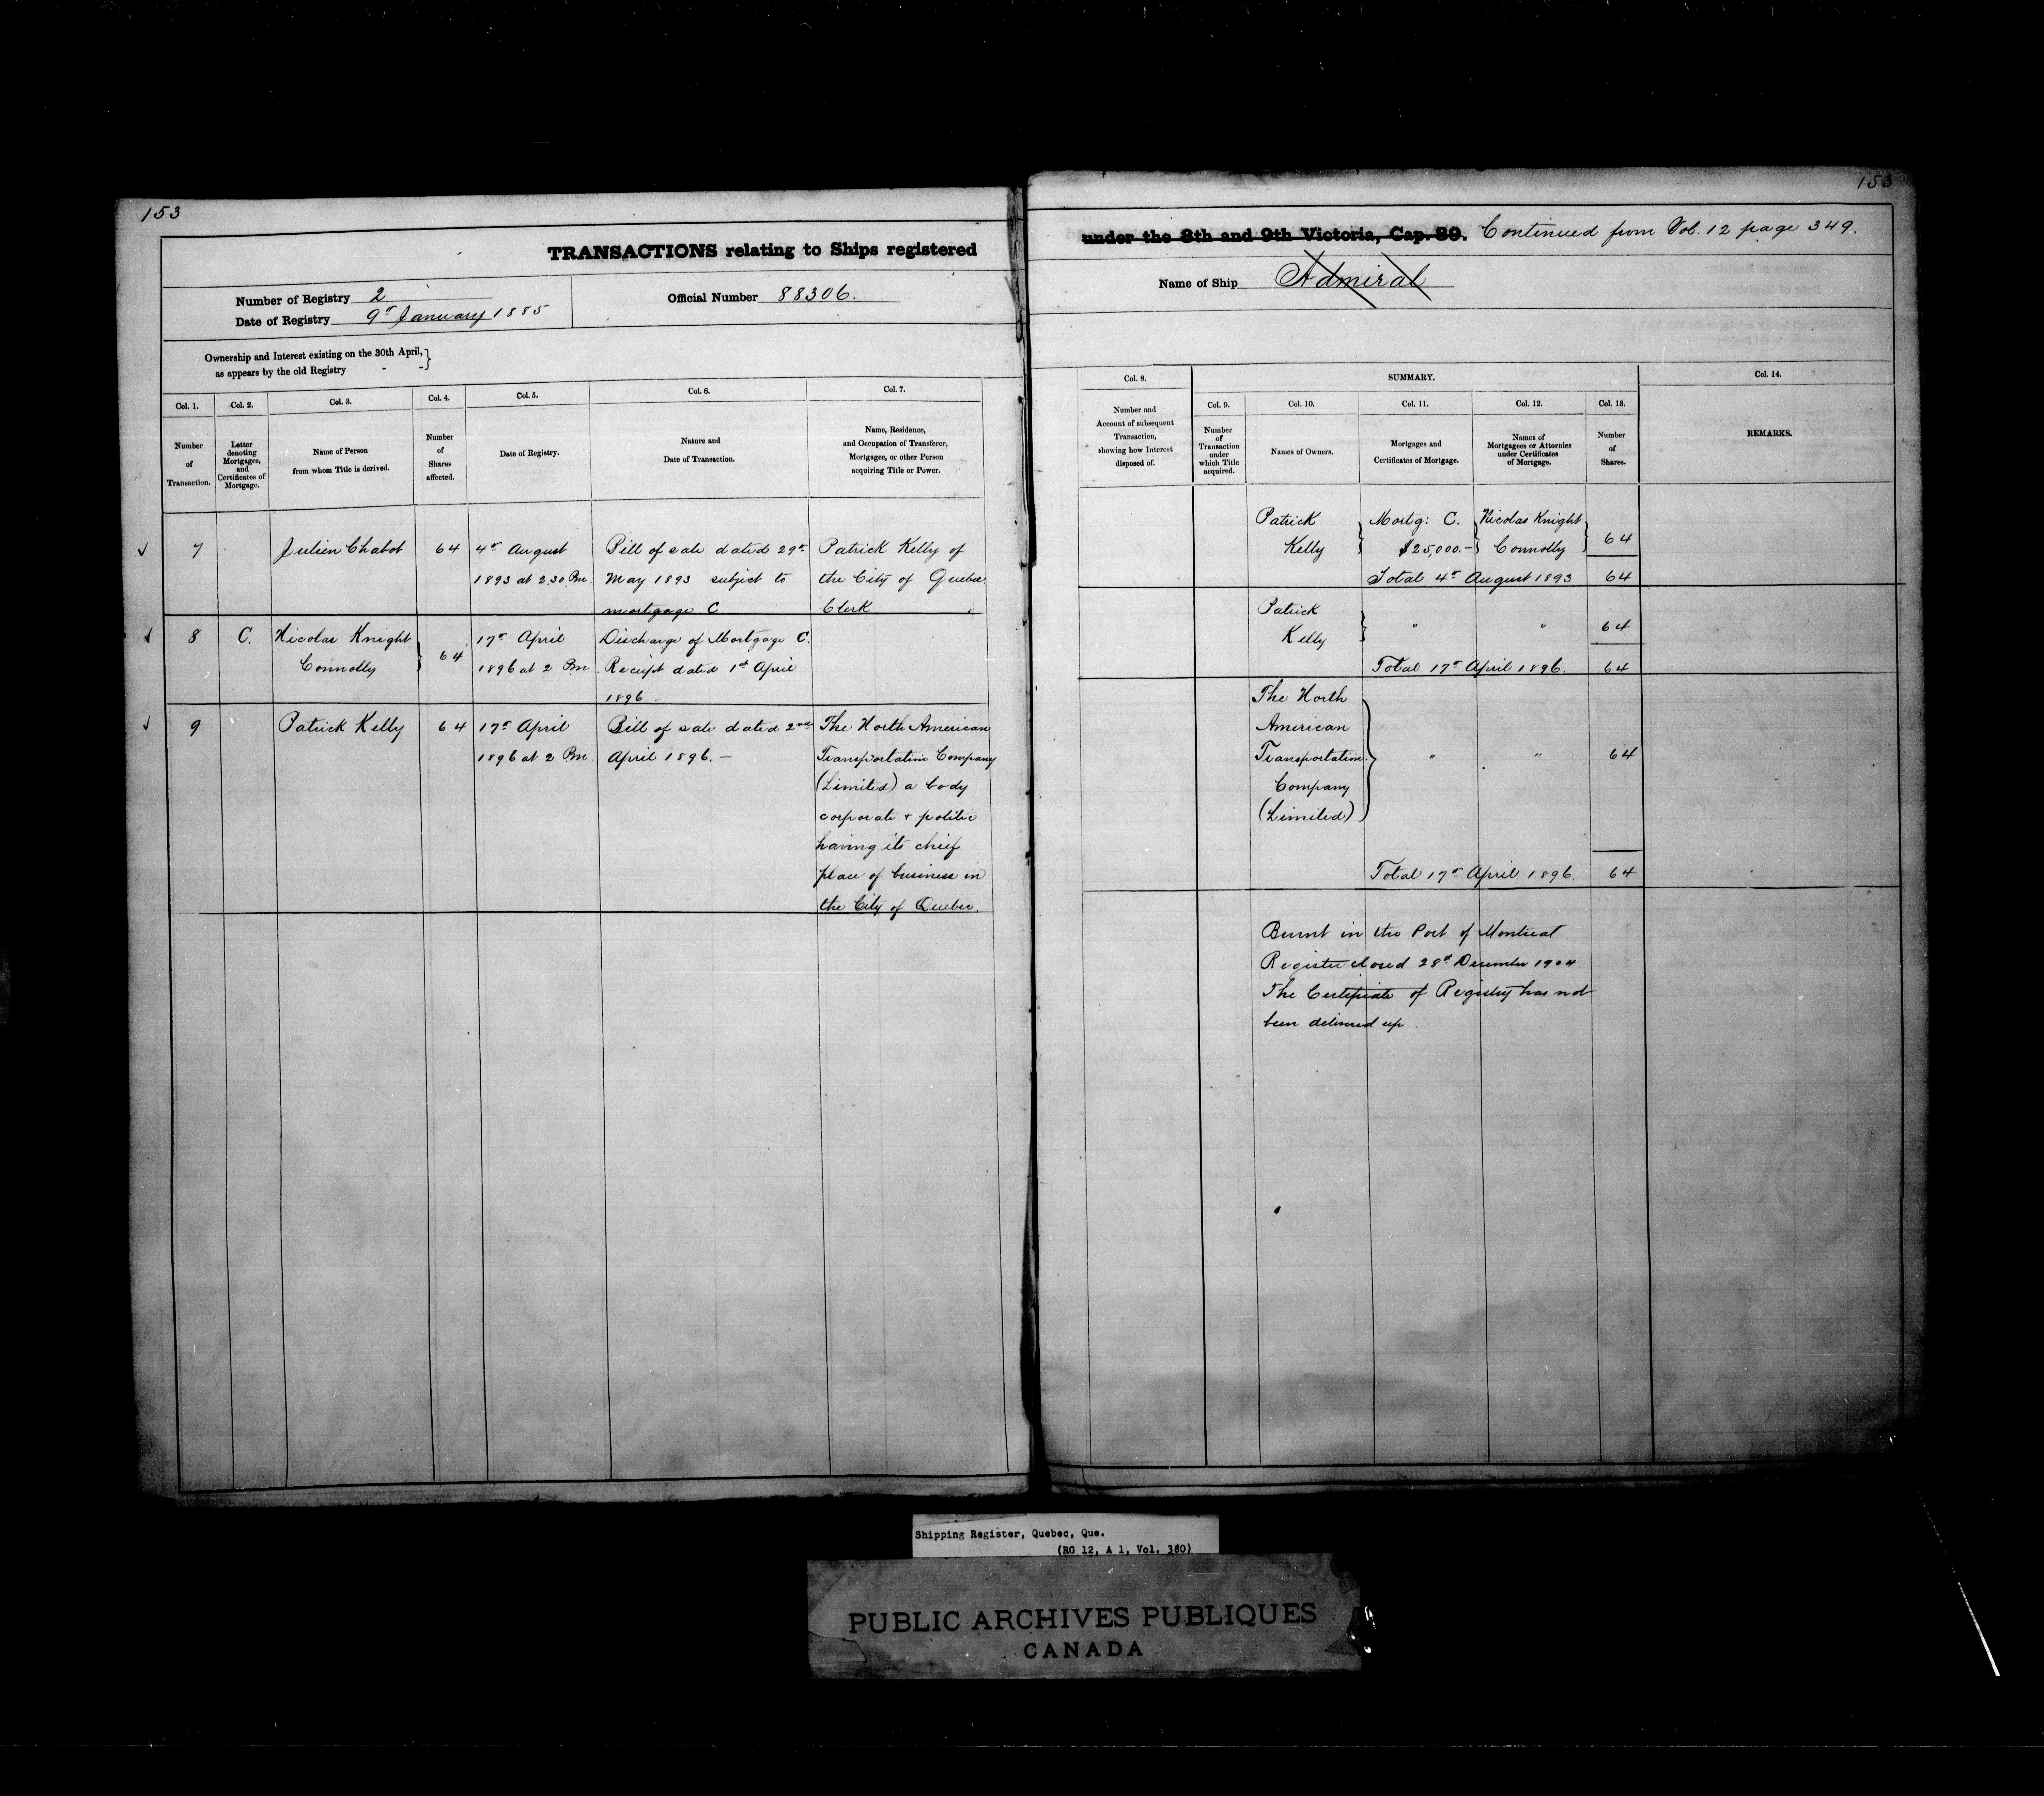 153
TRANSACTIONS relating to Ships registered
Number of Registry 2
Date of Registry 9th January 1885
Official Number 88306.
Ownership and Interest existing on the 30th April,
as appears by the old Registry - -
Col. 1.
Number
of
Transaction.
Col. 2.
Letter
denoting
Mortgages,
and
Certificates of
Mortgage.
Col. 3.
Name of Person
from whom Title is derived.
Col. 4.
Number
of
Shares
affected.
Col. 5.
Date of Registry.
Col. 6.
Nature and
Date of Transaction.
Col. 7.
Name, Residence,
and Occupation of Transferee,
Mortgagee, or other Person
acquiring Title or Power.
7
Julien Chabot
64
4th August
1893 at 2.30 Pm.
Bill of sale dated 29th
May 1893 subject to
mortgage C
Patrick Kelly of
the City of Quebec
Clerk
8
C.
Nicolas Knight
Connolly
64
17th April
1896 at 2 Pm
Discharge of Mortgage C.
Receipt dated 1st April
1896.
9
Patrick Kelly
64
17th April
1896 at 2 Pm.
Bill of sale dated 2nd
April 1896. —
The North American
Transportation Company
(Limited) a body
corporate & politic
having its chief
place of business in
the City of Quebec.
153
under the 8th and 9th Victoria, Cap. 89. Continued from Vol. 12 page 349.
Name of Ship Admiral
Col. 8.
Number and
Account of subsequent
Transaction,
showing how Interest
disposed of.
SUMMARY.
Col. 9.
Number
of
Transaction
under
which Title
acquired.
Col. 10.
Names of Owners.
Col. 11.
Mortgages and
Certificates of Mortgage.
Col. 12.
Names of
Mortgagees or Attornies
under Certificates
of Mortgage.
Col. 13.
Number
of
Shares.
Col. 14.
REMARKS.
Patrick
Kelly
Mortg: C.
$25,000.-
Nicolas Knight
Connolly
64
Total 4th August 1893 64
Patrick
Kelly
" " 64
Total 17th April 1896. 64
The North
American
Transportation
Company
(Limited)
" " 64
Total 17th April 1896. 64
Burnt in the Port of Montreal
Register closed 28th December 1904
The Certificate of Registry has not
been delivered up.
Shipping Register, Quebec, Que.
(RG 12, A 1, Vol. 380)
PUBLIC ARCHIVES PUBLIQUES
CANADA